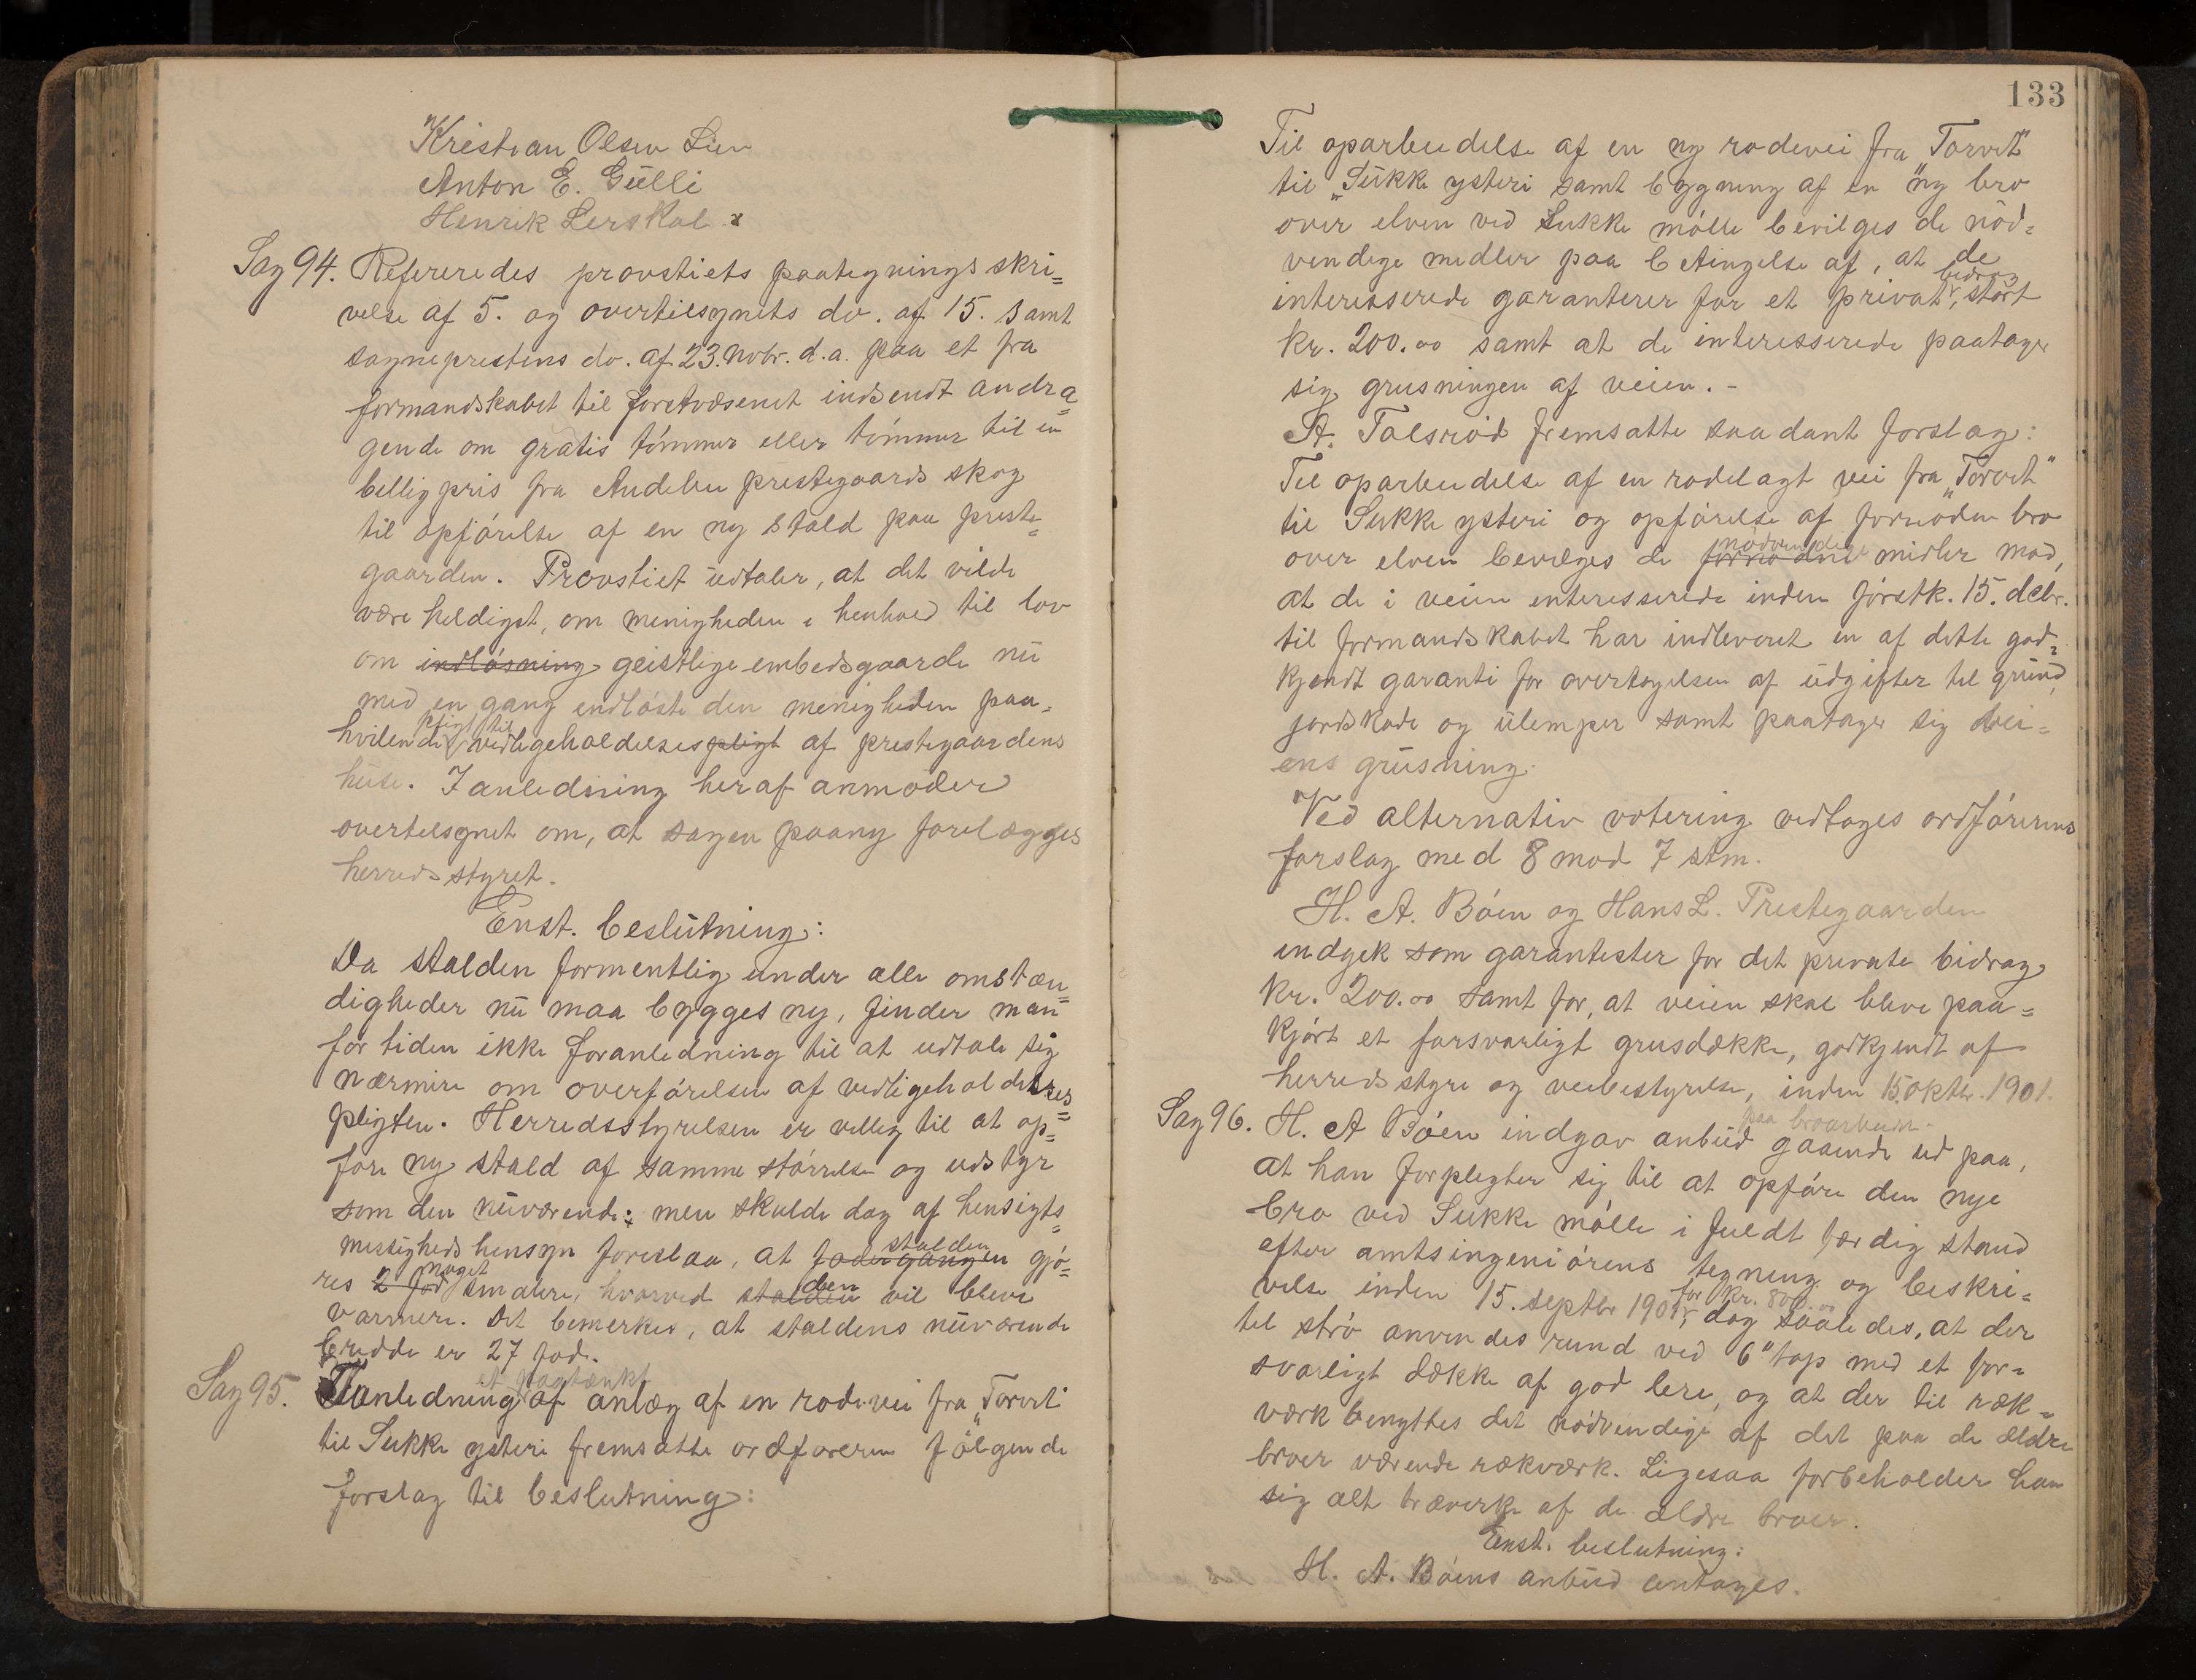 Kristian Olsen Lien
Anton E. Gülli
Henrik Lerskal.
Sag 94. Refereredes provstiets paategningsskri=
velse af 5. og overtilsynets do. af 15. samt
sogneprestens do. af 23. Novbr. d.a. paa et fra
formandskabet til forstvæsenet indsendt andra=
gende om gratis tömmer eller tömmer til en
billig pris fra Andebu prestegaards skog
til opförelse af en ny stald paa preste=
gaarden. Provstiet udtaler, at det vilde
være heldigst, om menigheden i henhold til lov
om indlösning geistlige embedsgaarde nu
med en gang indlöste den menigheden paa=
hvilende pligt til vedligeholdelsespligt af prestegaardens
huse. I anledning heraf anmoder
overtilsynet om, at sagen paany forelægges
herredsstyret.
Enst. beslutning:
Da stalden formentlig under alle omstæn=
digheder nu maa bygges ny, finder man
for tiden ikke foranledning til at udtale sig
nærmere om overförelsen af vedligeholdelses=
pligten. Herredsstyrelsen er villig til at op=
före ny stald af samme störrelse og udstyr
som den nuværende; men skulde dog af hensigts=
messigheds hensyn foreslaa, at fodergangen stalden gjö=
res 2 fod noget smalere, hvorved stalden den vil blive
varmere. Det bemerkes, at staldens nuværende
bredde er 27 fod.
Sag 95. I anledning af et paatænkt anlæg af en rodevei fra „Torvet"
til Sukke ysteri fremsatte ordföreren fölgende
forslag til beslutning:
133
Til oparbeidelse af en ny rodevei fra „Torvet"
til „Sukke ysteri samt bygning af en ny bro
over elven ved Sukke mölle bevilges de nöd=
vendige midler paa betingelse af, at de
interesserede garanterer for et privat bidrag, stort
kr. 200.00 samt at de interesserede paatager
sig grusningen af veien. -
A. Tolsröd fremsatte saadant forslag:
Til oparbeidelse af en rodelagt vei fra „Torvet"
til Sukke ysteri og opförelse af fornöden bro
over elven bevilges de fornödne nödvendige midler mod,
at de i veien interesserede inden förstk. 15. debr.
til formandskabet har indleveret en af dette god=
kjendt garanti for overtagelsen af udgifter til grund,
jordskade og ulemper samt paatager sig vei=
ens grusning.
Ved alternativ votering vedtages ordförerens
forslag med 8 mod 7 stm.
H. A. Böen og Hans L. Prestegaarden
indgik som garantister for det private bidrag
kr. 200.00 samt for, at veien skal blive paa=
kjört et forsvarligt grusdække, godkjendt af
herredsstyre og veibestyrelse, inden 15. oktbr. 1901.
Sag 96. H. A Böen indgav anbud paa broarbeidet gaaende ud paa,
at han forpligter sig til at opföre den nye
bro ved Sukke mölle i fuldt færdig stand
efter amtsingeniörens tegning og beskri=
velse inden 15. septbr 1901, for kr. 800.00 dog saaledes, at der
til strö anvendes rund ved 6" top med et for=
svarligt dække af god lere, og at der til ræk=
værk benyttes det nödvendige af det paa de ældre
broer værende rækværk. Ligesaa forbeholder han
sig alt træverk af de ældre broer.
Enst. beslutning:
H. A. Böens anbud antages.